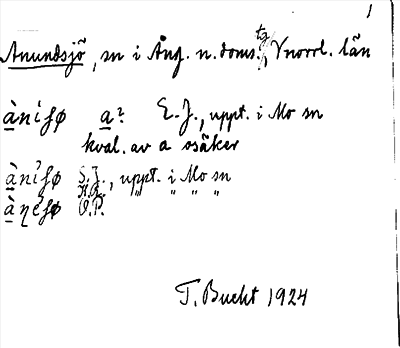 1
Anundsjö, sn i Ång. n. doms. tg, Vnorrl. län
ànisø a? E.J., uppt. i Mo sn
kval. av a osäker
ànisø S.J., uppt. i Mo sn
N.G. " " " "
àṇesø O.P.
T. Bucht 1924